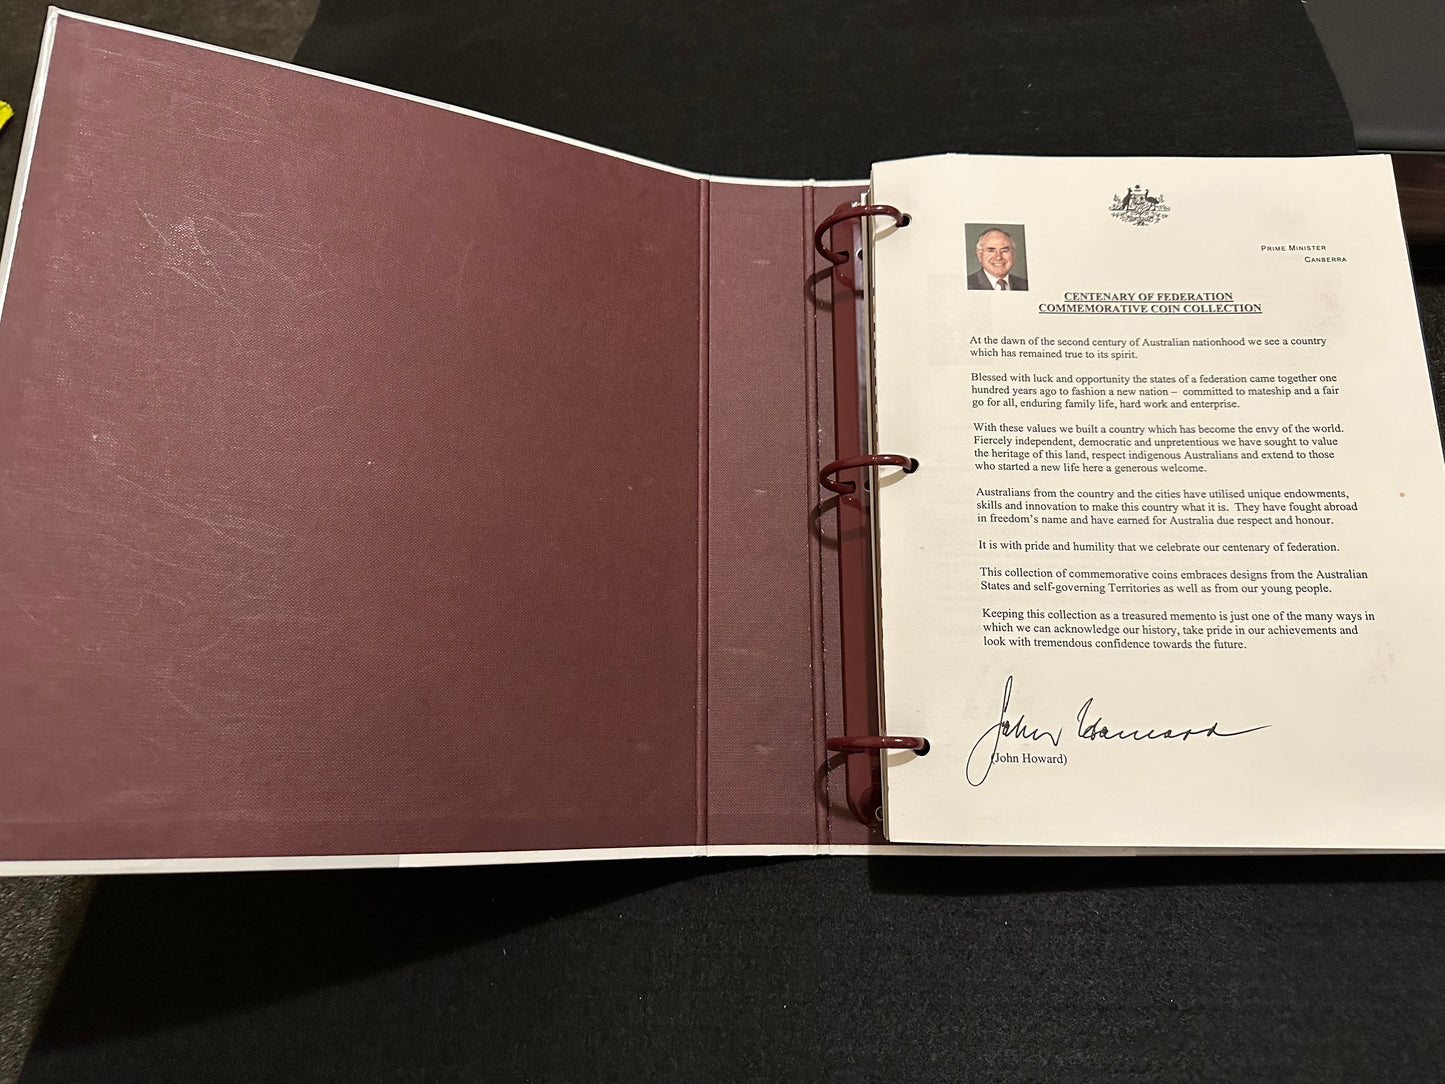 PRIME MINISTER
CANBERRA
CENTENARY OF FEDERATION
COMMEMORATIVE COIN COLLECTION
At the dawn of the second century of Australian nationhood we see a country
which has remained true to its spirit.
Blessed with luck and opportunity the states of a federation came together one
hundred years ago to fashion a new nation – committed to mateship and a fair
go for all, enduring family life, hard work and enterprise.
With these values we built a country which has become the envy of the world.
Fiercely independent, democratic and unpretentious we have sought to value
the heritage of this land, respect indigenous Australians and extend to those
who started a new life here a generous welcome.
Australians from the country and the cities have utilised unique endowments,
skills and innovation to make this country what it is. They have fought abroad
in freedom's name and have earned for Australia due respect and honour.
It is with pride and humility that we celebrate our centenary of federation.
This collection of commemorative coins embraces designs from the Australian
States and self-governing Territories as well as from our young people.
Keeping this collection as a treasured memento is just one of the many ways in
which we can acknowledge our history, take pride in our achievements and
look with tremendous confidence towards the future.
John Howard
(John Howard)